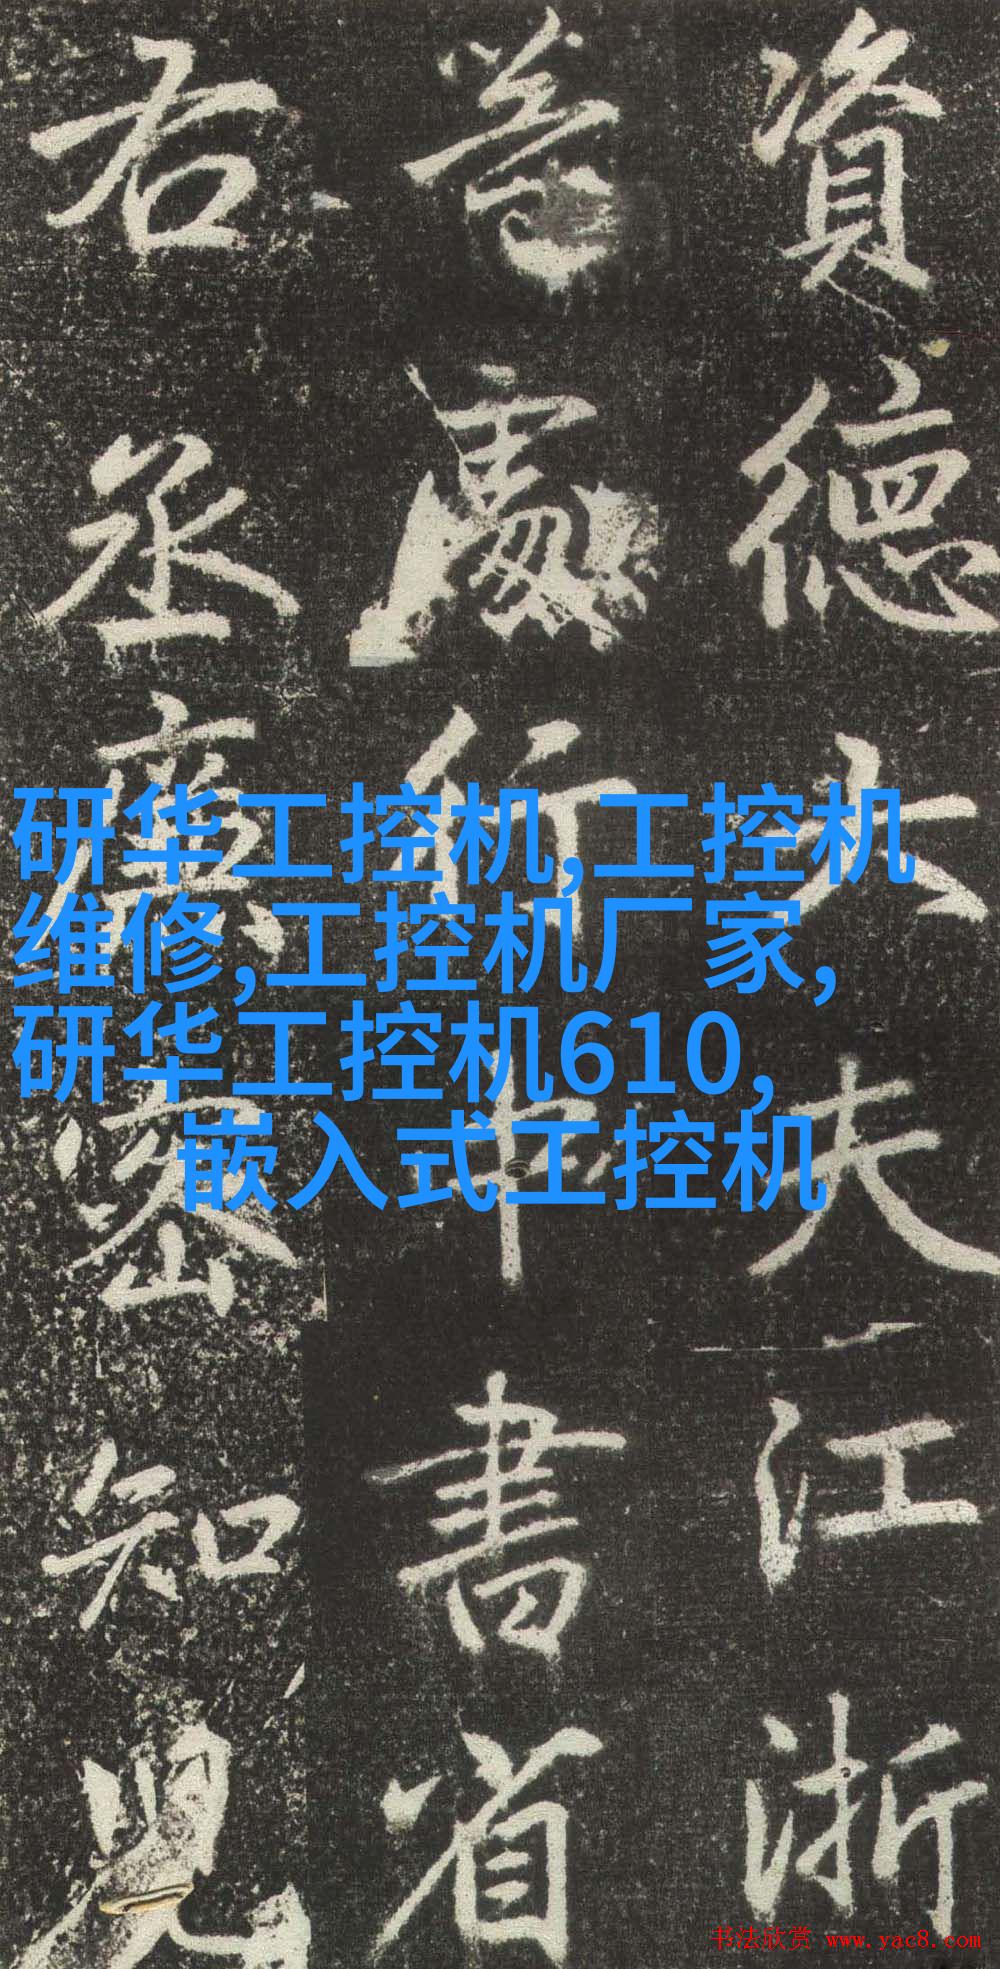 資德大夫江浙
等處行中書省
右丞廉密知兒
研华工控机,工控机
维修,工控机厂家,
研华工控机610,
嵌入式工控机
书法欣赏 www.yac8.com